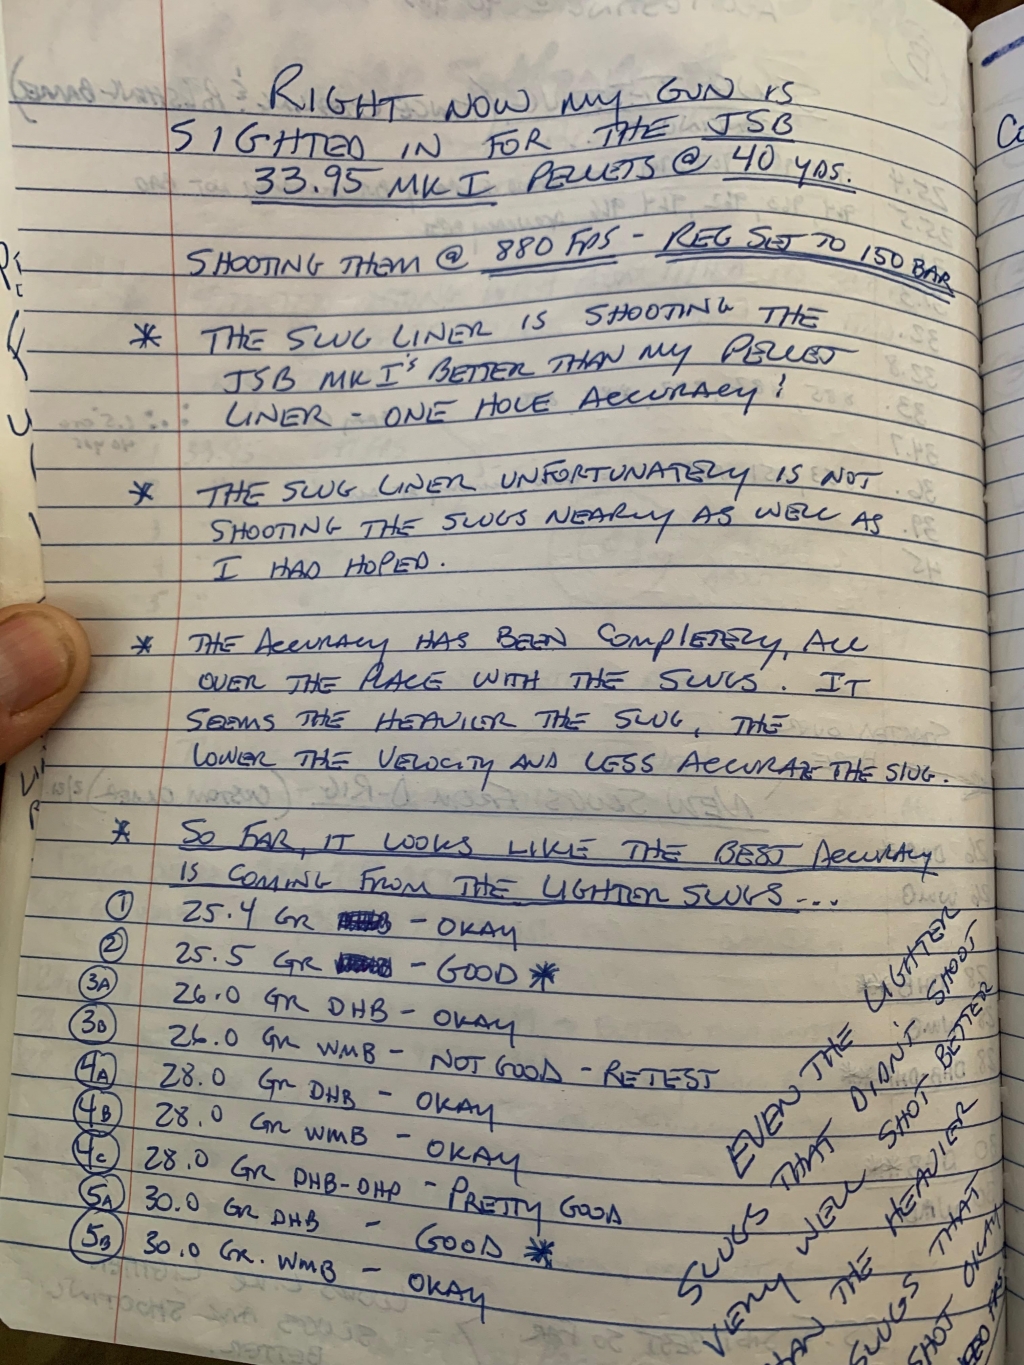 RIGHT NOW MY GUN IS
SIGHTED IN FOR THE JSB
33.95 MK I PELLETS @ 40 YDS.
SHOOTING THEM @ 880 FPS - REG SET TO 150 BAR
* THE SLUG LINER IS SHOOTING THE
JSB MK I's BETTER THAN MY PELLET
LINER - ONE HOLE ACCURACY!
* THE SLUG LINER UNFORTUNATELY IS NOT
SHOOTING THE SLUGS NEARLY AS WELL AS
I HAD HOPED.
* THE ACCURACY HAS BEEN COMPLETELY, ALL
OVER THE PLACE WITH THE SLUGS. IT
SEEMS THE HEAVIER THE SLUG, THE
LOWER THE VELOCITY AND LESS ACCURATE THE SLUG.
* SO FAR, IT LOOKS LIKE THE BEST ACCURACY
IS COMING FROM THE LIGHTER SLUGS...
1 25.4 GR - OKAY
2 25.5 GR - GOOD *
3A 26.0 GR DHB - OKAY
3B 26.0 GR WMB - NOT GOOD - RETEST
4A 28.0 GR DHB - OKAY
4B 28.0 GR WMB - OKAY
4C 28.0 GR DHB-DHP - PRETTY GOOD
5A 30.0 GR DHB - GOOD *
5B 30.0 GR. WMB - OKAY
EVEN THE LIGHTER
SLUGS THAT DIDN'T SHOOT
VERY WELL SHOT BETTER
THAN THE HEAVIER
SLUGS THAT
SHOT OKAY